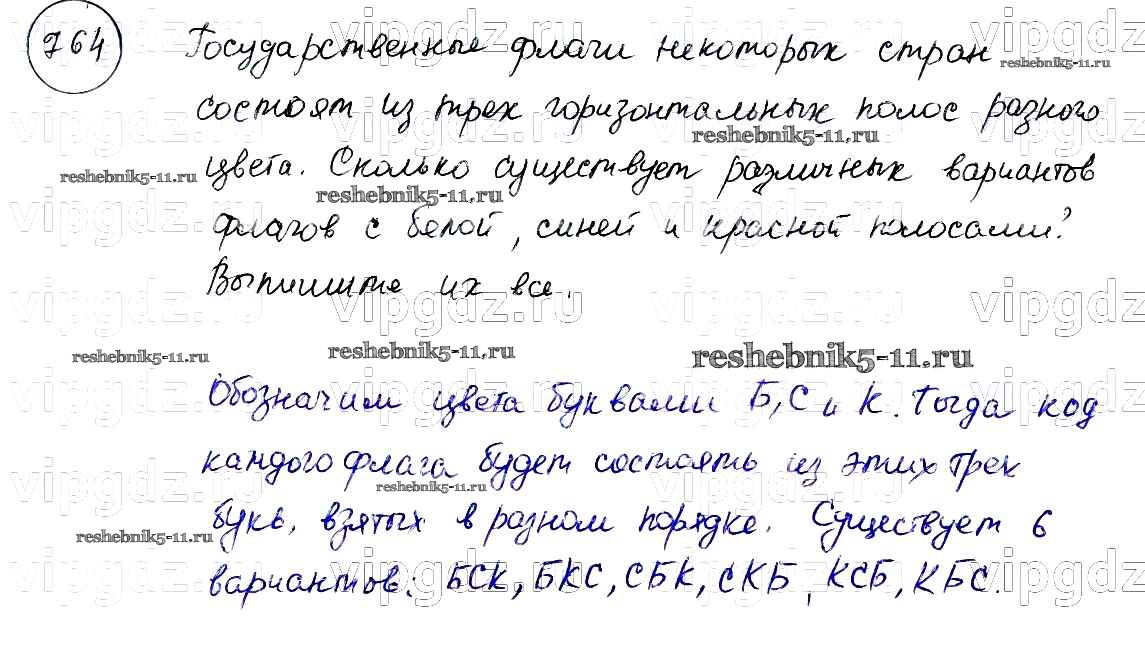 764
Государственные флаги некоторых стран
состоят из трех горизонтальных полос разного
цвета. Сколько существует различных вариантов
флагов с белой, синей и красной полосами?
Выпишите их все.
Обозначим цвета буквами Б, С и К. Тогда код
каждого флага будет состоять из этих трех
букв, взятых в разном порядке. Существует 6
вариантов: БСК, БКС, СБК, СКБ, КСБ, КБС.
vipgdz.ru
reshebnik5-11.ru